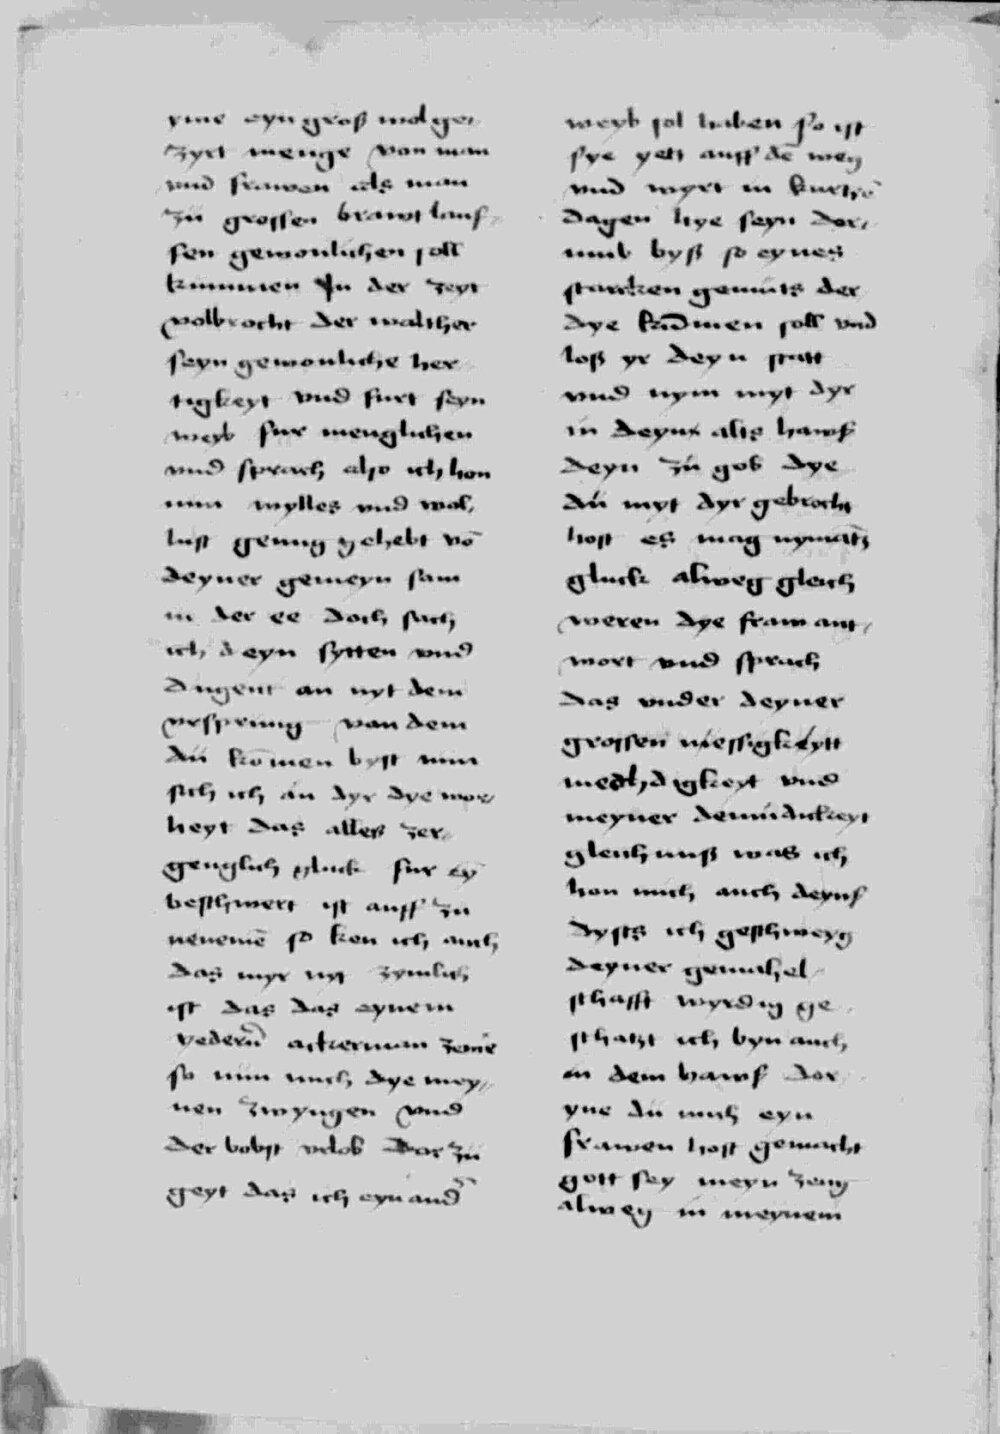 yme eyn groß wol ger
zyrt menge von man
vnd frawen als man
zu grossen brawt lauf⸗
fen gewonlichen soll
kummen In der zeyt
volbrocht der walther
seyn gewonliche her
tigkeyt vnd furt seyn
weyb fur menglichen
vnd sprach also ich hon
nun wylles vnd wol⸗
lust genug gehebt vō
deyner gemeyn sam
in der ee doch sach
ich deyn sytten vnd
dugent an nyt dem
vrsprung von dem
du kōmen byst nun
sich ich an dyr dye wor⸗
heyt das alles zer⸗
genglich gluck fur eȳ
beschwert ist auff zu
nenemē so ken ich auch
das myr nyt zymlich
ist das das eynem
yedern̄ ackerman zeme
so nun mich dye mey⸗
nen zwyngen vnd
der bobst vrlob dor zu
geyt das ich eyn and̄
weyb sol haben so ist
sye yetz auff dē weg
vnd wyrt in kurtzē
dagen hye seyn dor⸗
umb byß so eynes
starcken gemuts der
dye kūmen soll vnd
loß yr deyn statt
vnd nym myt dyr
in deyns alts hawß
deyn zu gob dye
du myt dyr gebrocht
host es mag nymātz
gluck alweg gleich
weren dye fraw ant⸗
wort vnd sprach
das vnder deyner
grossen messigkeytt
mechdigkeyt vnd
meyner demudickeyt
gleichnuß was ich
hon mich auch deynß
dysts ich geschweyg
deyner gemahel⸗
schafft wyrdig ge⸗
schatzt ich byn auch
in dem hawß dor⸗
yne du mich eyn
frawen host gemacht
gott sey meyn zeug
alweg in meynem